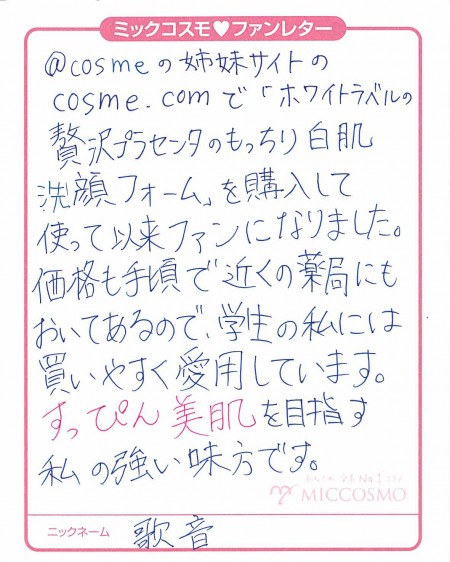 ミックコスモ♥ファンレター
@cosmeの姉妹サイトの
cosme.comで「ホワイトラベルの
贅沢プラセンタのもっちり白肌
洗顔フォーム」を購入して
使って以来ファンになりました。
価格も手頃で近くの薬局にも
おいてあるので、学生の私には
買いやすく愛用しています。
すっぴん美肌を目指す
私の強い味方です。
MICCOSMO
ニックネーム 歌音